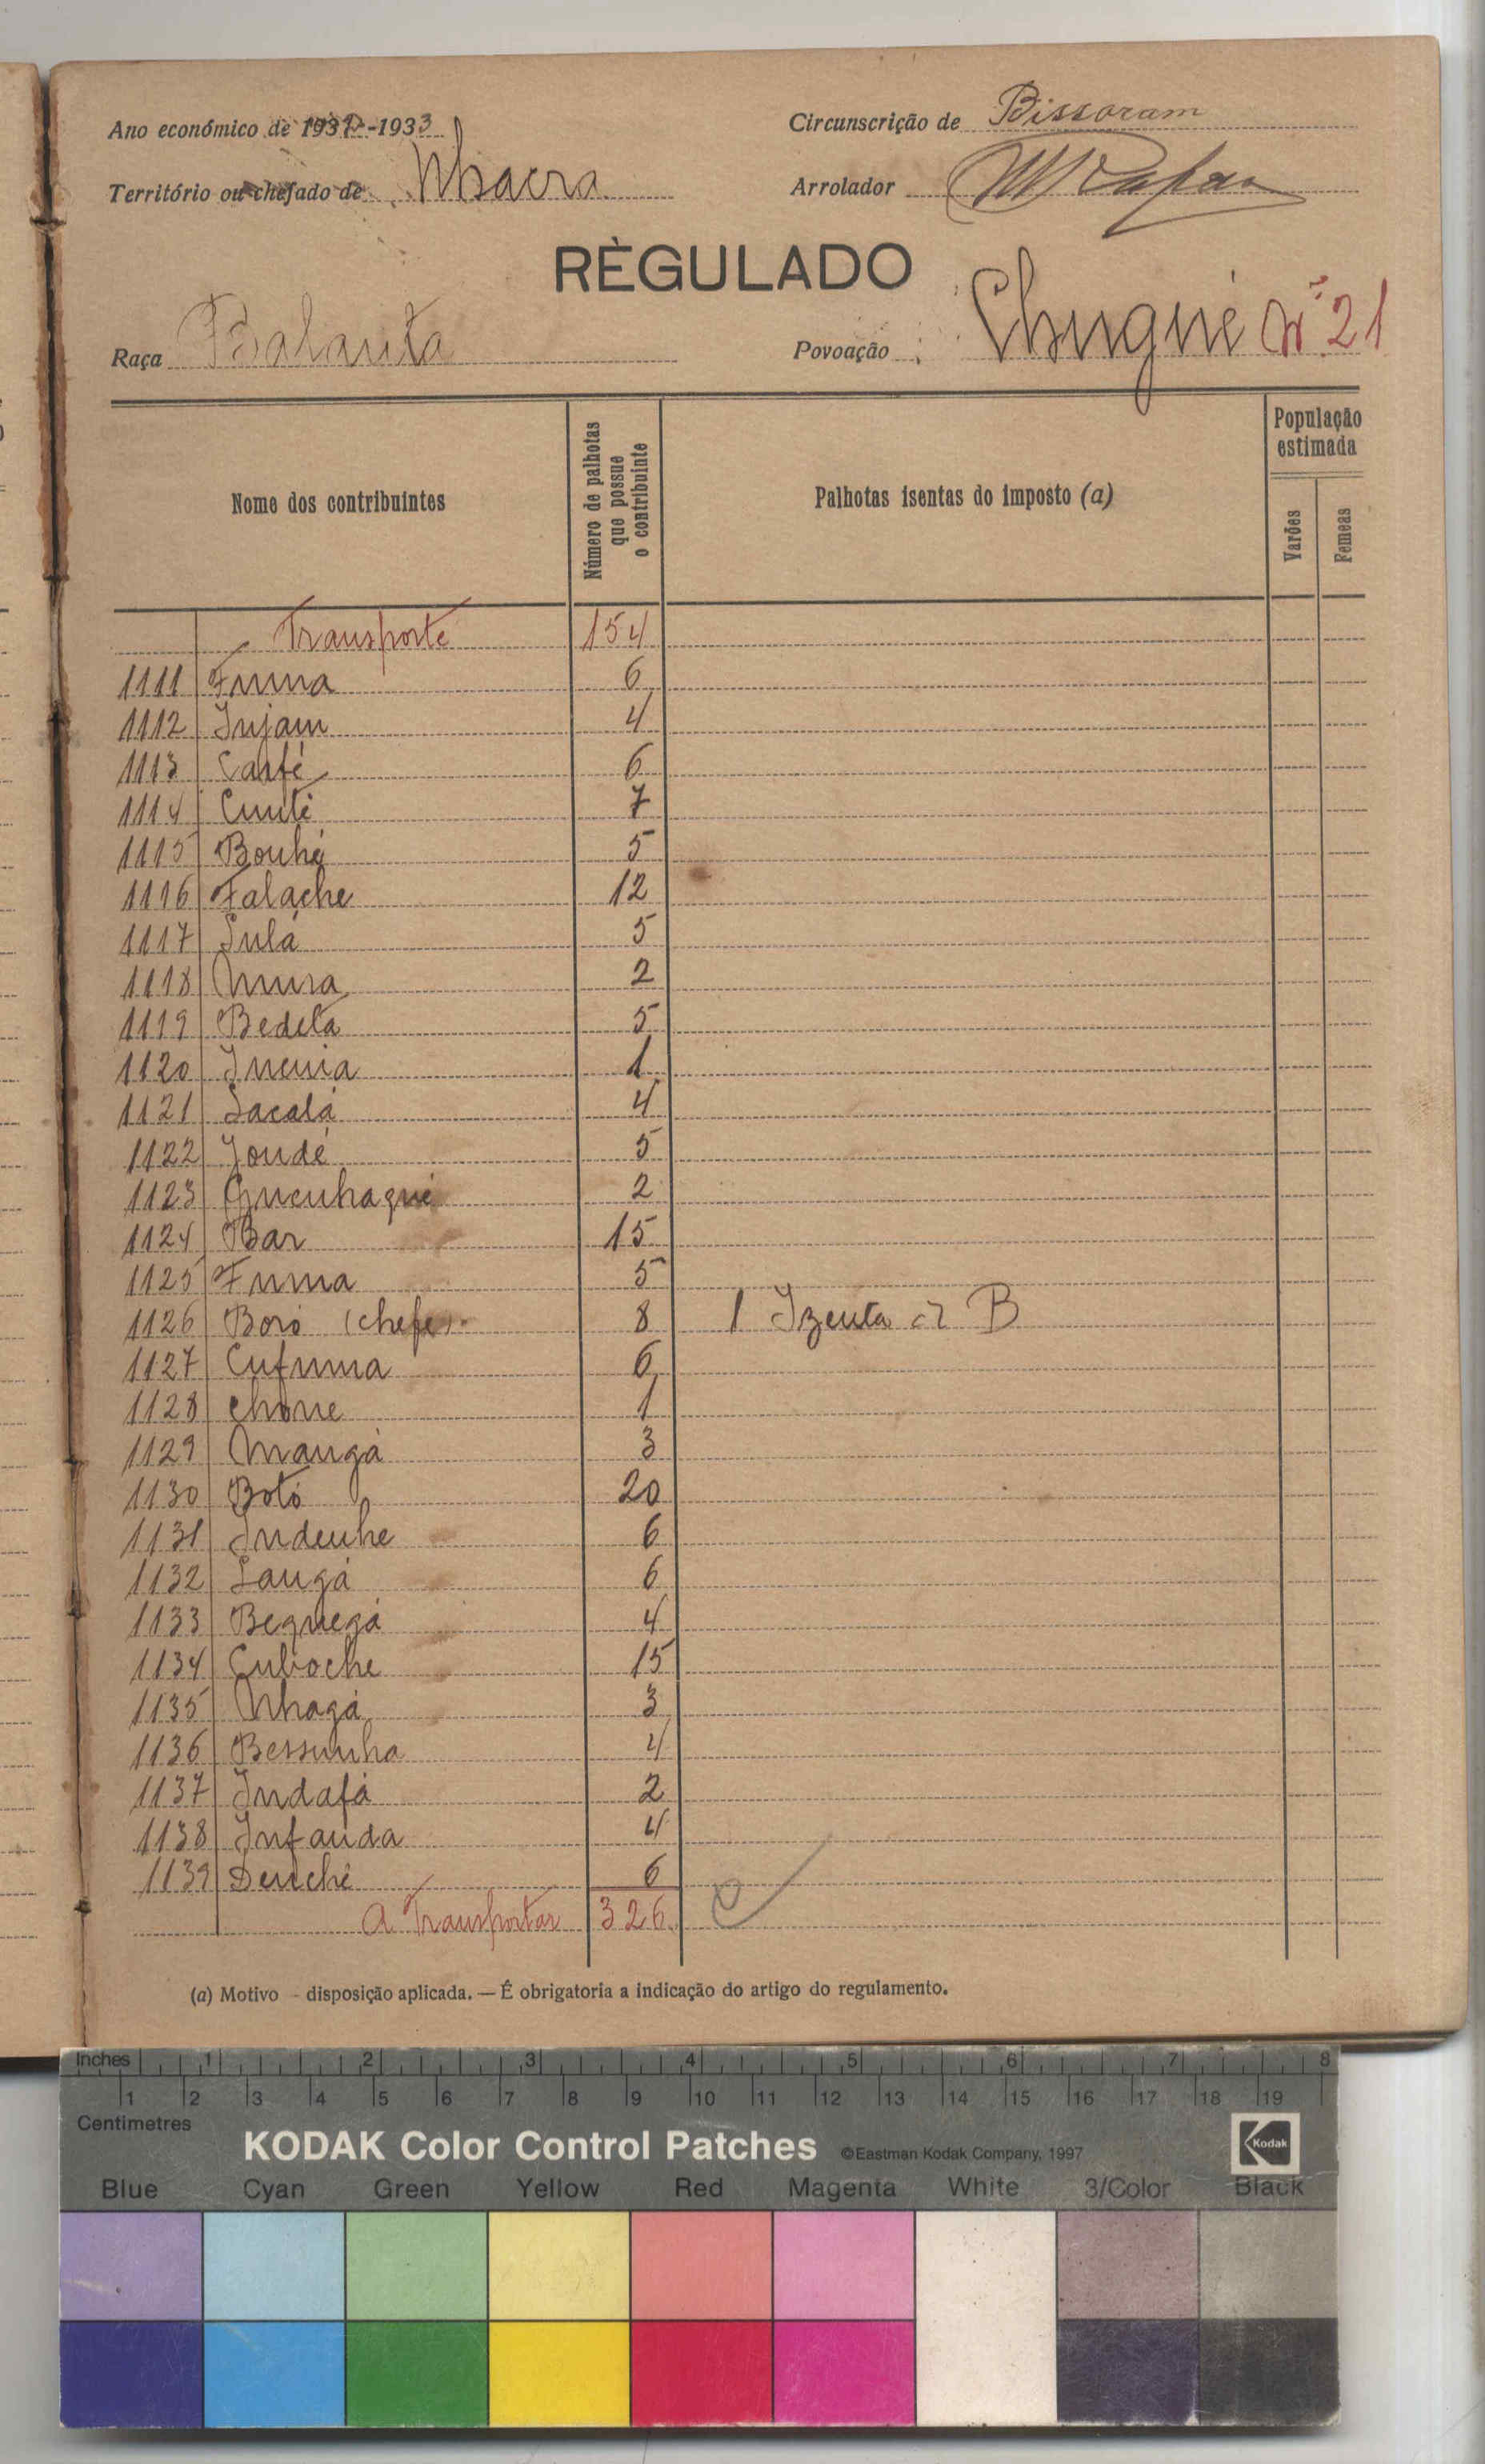 Ano económico de 1932-1933
Circunscrição de Bissoram
Território ou chefado de Nhacra
Arrolador
RÈGULADO
Raça Balanta
Povoação Chugué Nº 21
Nome dos contribuintes
Número de palhotas que possue o contribuinte
Palhotas isentas do imposto (a)
População estimada
Varões
Femeas
Transporte 154
1111 Fuma 6
1112 Injam 4
1113 Canfé 6
1114 Cunté 7
1115 Bonhé 5
1116 Falache 12
1117 Sulá 5
1118 Mura 2
1119 Bedeta 5
1120 1
1121 Sacalá 4
1122 Jondé 5
1123 Guenhaqué 2
1124 Bar 15
1125 Fuma 5
1126 Boró (chefe) 8 1 Izenta B
1127 Cufuma 6
1128 Chone 1
1129 Mangá 3
1130 Botó 20
1131 Indenhe 6
1132 Sangá 6
1133 Beguegá 4
1134 Cuboche 15
1135 Nhagá 3
1136 Bessunha 4
1137 Indafá 2
1138 Infanda 4
1139 Denché 6
A Transportar 326
(a) Motivo – disposição aplicada. — É obrigatoria a indicação do artigo do regulamento.
Inches 1 2 3 4 5 6 7 8
1 2 3 4 5 6 7 8 9 10 11 12 13 14 15 16 17 18 19
Centimetres
KODAK Color Control Patches ©Eastman Kodak Company, 1997 Kodak
Blue Cyan Green Yellow Red Magenta White 3/Color Black